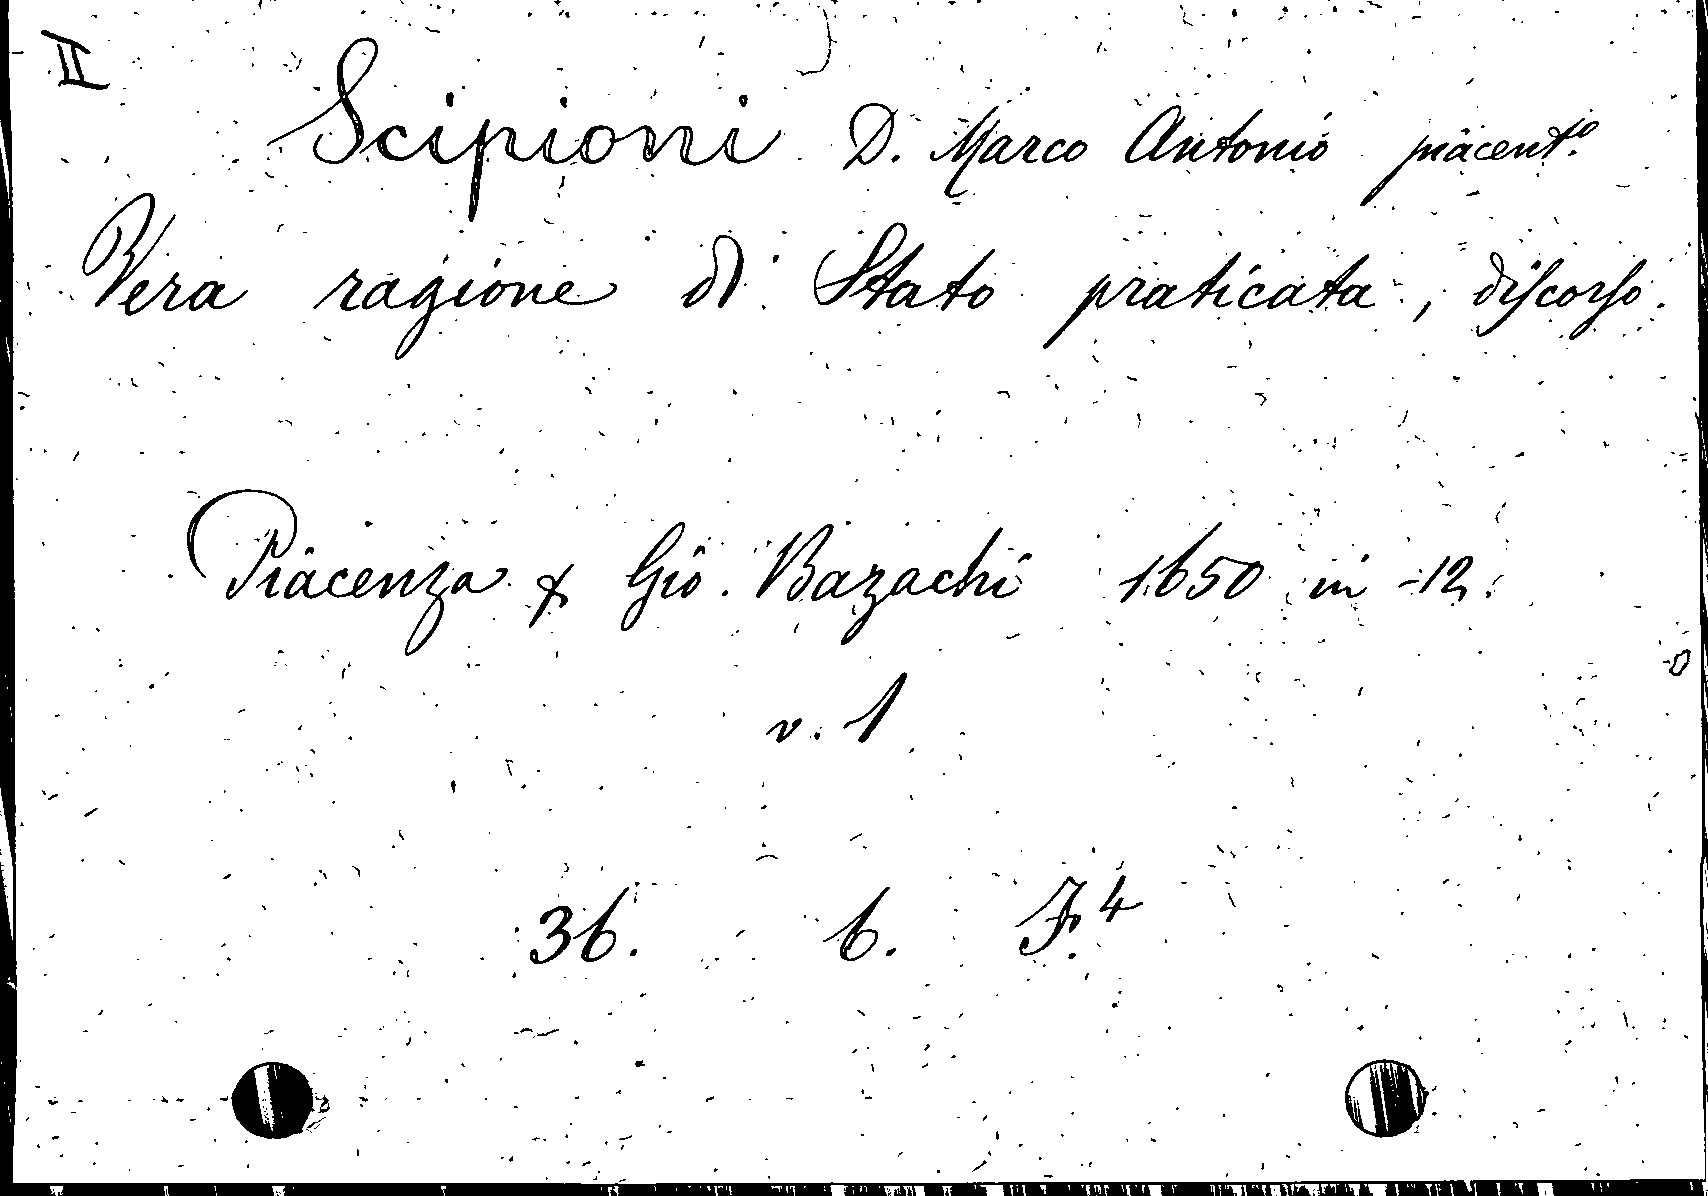 II
Scipioni D. Marco Antonio piacent.º
Vera ragione di Stato praticata, discorso.
Piacenza & Gio. Bazachi 1650 in-12.
v. 1
36. 6. F.4